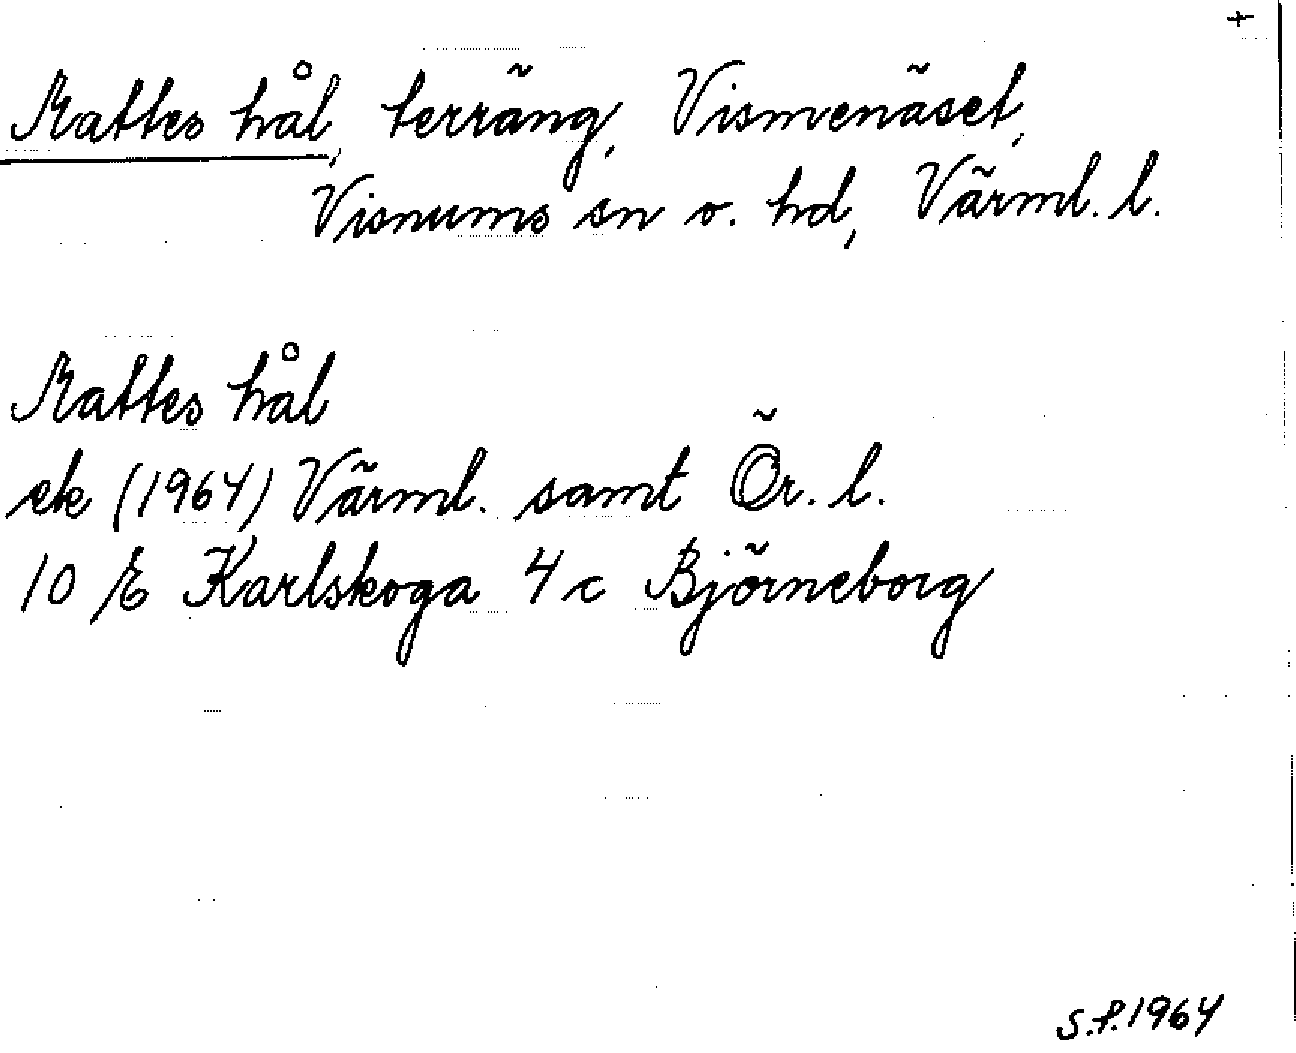 +
Mattes hål, terräng, Vismenäset,
Visnums sn o. hd, Värml. l.
Mattes hål
ek (1964) Värml. samt Ör. l.
10 E Karlskoga 4 c Björneborg
S.P. 1964